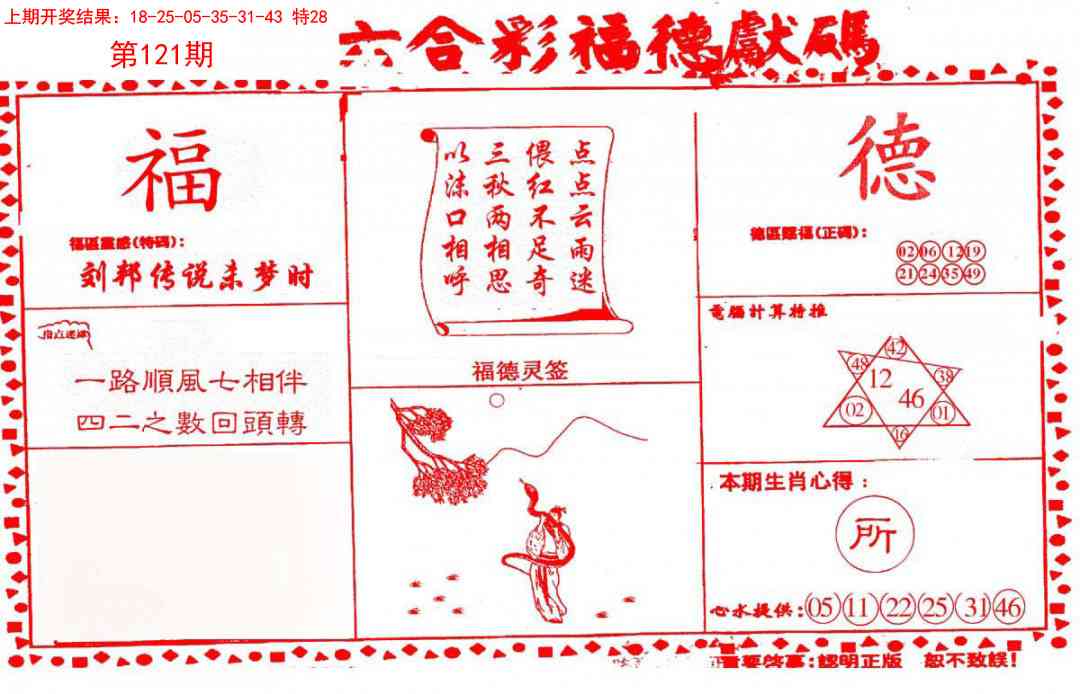 上期开奖结果：18-25-05-35-31-43 特28
第121期
六合彩福德獻碼
福
福區靈感(特碼)：
刘邦传说未梦时
指点迷津
一路順風七相伴
四二之數回頭轉
点点云雨迷
偎红不足奇
三秋两相思
以沫口相呼
福德灵签
德
德區賜福(正碼)：
02 06 12 19
21 24 35 49
電腦計算特推
42
48 12 38
46
02 01
16
本期生肖心得：
所
心水提供：05 11 22 25 31 46
重要啓事：認明正版 恕不致誤！